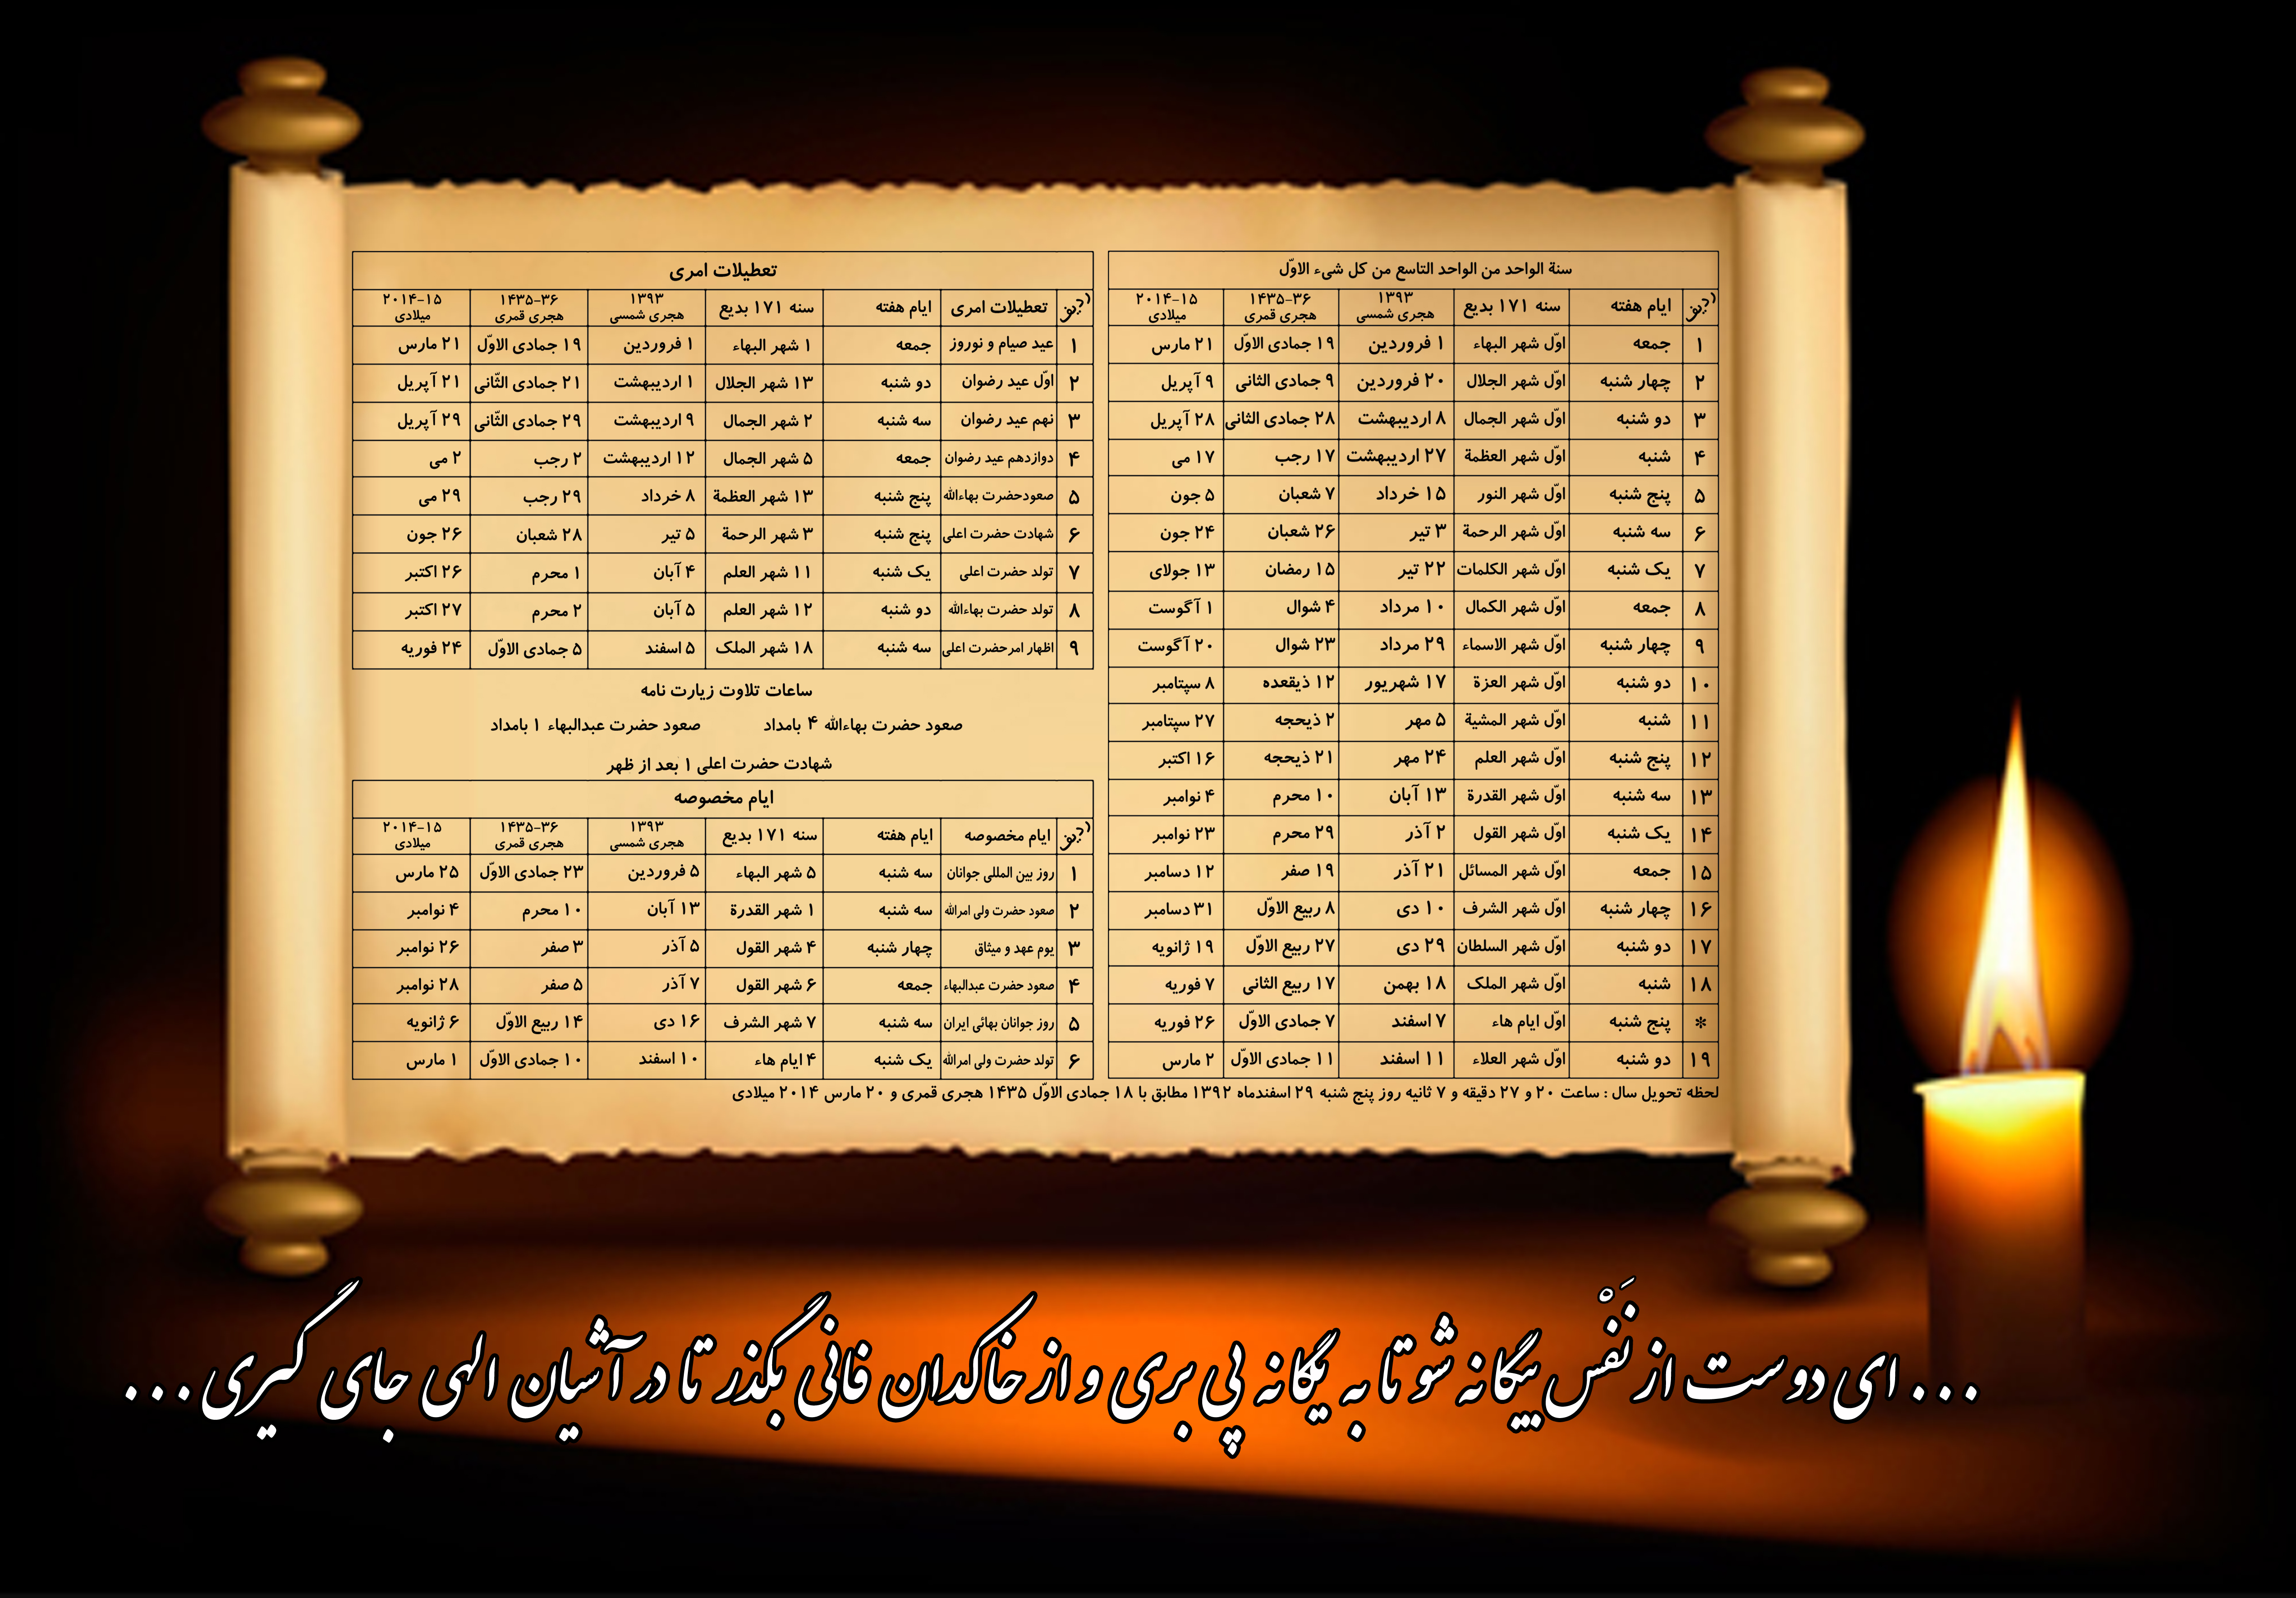 سنة الواحد من الواحد التاسع من كل شیء الاوّل
ردیف ایام هفته سنه ۱۷۱ بدیع ۱۳۹۳ هجری شمسی ۱۴۳۵-۳۶ هجری قمری ۲۰۱۴-۱۵ میلادی
۱ جمعه اوّل شهر البهاء ۱ فروردین ۱۹ جمادی الاوّل ۲۱ مارس
۲ چهار شنبه اوّل شهر الجلال ۲۰ فروردین ۹ جمادی الثانی ۹ آپریل
۳ دو شنبه اوّل شهر الجمال ۸ اردیبهشت ۲۸ جمادی الثانی ۲۸ آپریل
۴ شنبه اوّل شهر العظمة ۲۷ اردیبهشت ۱۷ رجب ۱۷ می
۵ پنج شنبه اوّل شهر النور ۱۵ خرداد ۷ شعبان ۵ جون
۶ سه شنبه اوّل شهر الرحمة ۳ تیر ۲۶ شعبان ۲۴ جون
۷ یک شنبه اوّل شهر الکلمات ۲۲ تیر ۱۵ رمضان ۱۳ جولای
۸ جمعه اوّل شهر الکمال ۱۰ مرداد ۴ شوال ۱ آگوست
۹ چهار شنبه اوّل شهر الاسماء ۲۹ مرداد ۲۳ شوال ۲۰ آگوست
۱۰ دو شنبه اوّل شهر العزة ۱۷ شهریور ۱۲ ذیقعده ۸ سپتامبر
۱۱ شنبه اوّل شهر المشیة ۵ مهر ۲ ذیحجه ۲۷ سپتامبر
۱۲ پنج شنبه اوّل شهر العلم ۲۴ مهر ۲۱ ذیحجه ۱۶ اکتبر
۱۳ سه شنبه اوّل شهر القدرة ۱۳ آبان ۱۰ محرم ۴ نوامبر
۱۴ یک شنبه اوّل شهر القول ۲ آذر ۲۹ محرم ۲۳ نوامبر
۱۵ جمعه اوّل شهر المسائل ۲۱ آذر ۱۹ صفر ۱۲ دسامبر
۱۶ چهار شنبه اوّل شهر الشرف ۱۰ دی ۸ ربیع الاوّل ۳۱ دسامبر
۱۷ دو شنبه اوّل شهر السلطان ۲۹ دی ۲۷ ربیع الاوّل ۱۹ ژانویه
۱۸ شنبه اوّل شهر الملک ۱۸ بهمن ۱۷ ربیع الثانی ۷ فوریه
* پنج شنبه اوّل ایام هاء ۷ اسفند ۷ جمادی الاوّل ۲۶ فوریه
۱۹ دو شنبه اوّل شهر العلاء ۱۱ اسفند ۱۱ جمادی الاوّل ۲ مارس
تعطیلات امری
ردیف تعطیلات امری ایام هفته سنه ۱۷۱ بدیع ۱۳۹۳ هجری شمسی ۱۴۳۵-۳۶ هجری قمری ۲۰۱۴-۱۵ میلادی
۱ عید صیام و نوروز جمعه ۱ شهر البهاء ۱ فروردین ۱۹ جمادی الاوّل ۲۱ مارس
۲ اوّل عید رضوان دو شنبه ۱۳ شهر الجلال ۱ اردیبهشت ۲۱ جمادی الثّانی ۲۱ آپریل
۳ نهم عید رضوان سه شنبه ۲ شهر الجمال ۹ اردیبهشت ۲۹ جمادی الثّانی ۲۹ آپریل
۴ دوازدهم عید رضوان جمعه ۵ شهر الجمال ۱۲ اردیبهشت ۲ رجب ۲ می
۵ صعودحضرت بهاءالله پنج شنبه ۱۳ شهر العظمة ۸ خرداد ۲۹ رجب ۲۹ می
۶ شهادت حضرت اعلی پنج شنبه ۳ شهر الرحمة ۵ تیر ۲۸ شعبان ۲۶ جون
۷ تولد حضرت اعلی یک شنبه ۱۱ شهر العلم ۴ آبان ۱ محرم ۲۶ اکتبر
۸ تولد حضرت بهاءالله دو شنبه ۱۲ شهر العلم ۵ آبان ۲ محرم ۲۷ اکتبر
۹ اظهار امرحضرت اعلی سه شنبه ۱۸ شهر الملک ۵ اسفند ۵ جمادی الاوّل ۲۴ فوریه
ساعات تلاوت زیارت نامه
صعود حضرت بهاءالله ۴ بامداد صعود حضرت عبدالبهاء ۱ بامداد
شهادت حضرت اعلی ۱ بعد از ظهر
ایام مخصوصه
ردیف ایام مخصوصه ایام هفته سنه ۱۷۱ بدیع ۱۳۹۳ هجری شمسی ۱۴۳۵-۳۶ هجری قمری ۲۰۱۴-۱۵ میلادی
۱ روز بین المللی جوانان سه شنبه ۵ شهر البهاء ۵ فروردین ۲۳ جمادی الاوّل ۲۵ مارس
۲ صعود حضرت ولی امرالله سه شنبه ۱ شهر القدرة ۱۳ آبان ۱۰ محرم ۴ نوامبر
۳ یوم عهد و میثاق چهار شنبه ۴ شهر القول ۵ آذر ۳ صفر ۲۶ نوامبر
۴ صعود حضرت عبدالبهاء جمعه ۶ شهر القول ۷ آذر ۵ صفر ۲۸ نوامبر
۵ روز جوانان بهائی ایران سه شنبه ۷ شهر الشرف ۱۶ دی ۱۴ ربیع الاوّل ۶ ژانویه
۶ تولد حضرت ولی امرالله یک شنبه ۴ ایام هاء ۱۰ اسفند ۱۰ جمادی الاوّل ۱ مارس
لحظه تحویل سال : ساعت ۲۰ و ۲۷ دقیقه و ۷ ثانیه روز پنج شنبه ۲۹ اسفندماه ۱۳۹۲ مطابق با ۱۸ جمادی الاوّل ۱۴۳۵ هجری قمری و ۲۰ مارس ۲۰۱۴ میلادی
... ای دوست از نَفْس بیگانه شو تا به یگانه پی بری و از خاکدان فانی بگذر تا در آشیان الهی جای گیری ...